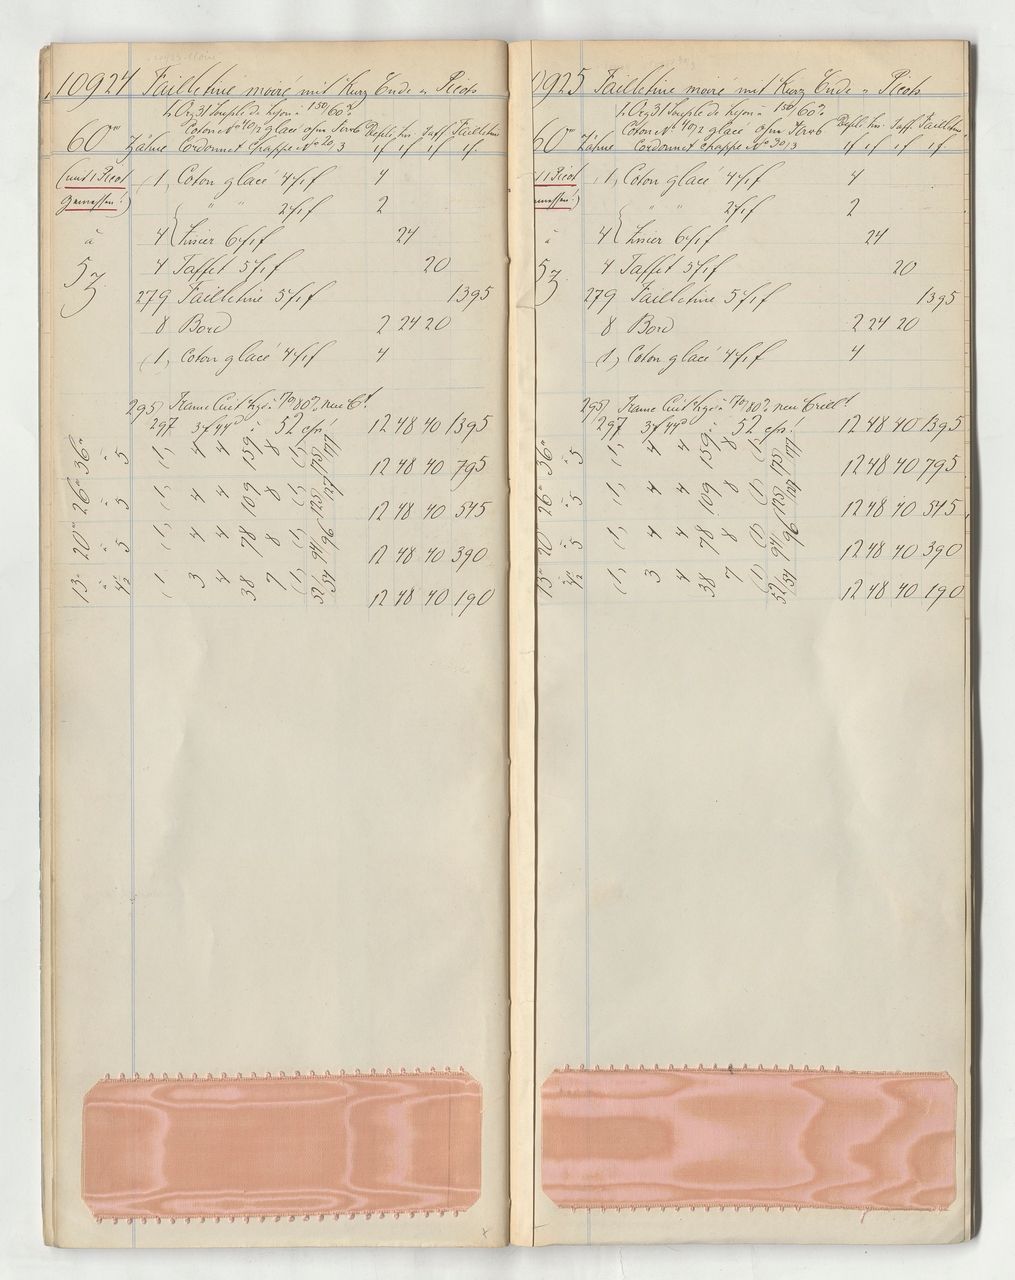 10924 Failletine moiré mit Kurz Ende u. Picots
1. Org 31 Souple de Lyon à 150/60%
60''' Coton No 40/2 glacé ofm Strob Liss Taff Failletine
Zähne Cordonnet Chappe No 20/3 1f 1f 1f 1f
(mit 1 Picot (1) Coton glacé 4f 1f 4
gemessen!) " " 2f 1f 2
à 4 Lisier 6f 1f 24
5 4 Taffet 5f 1f 20
Z. 279 Failletine 5f 1f 1395
8 Bord 2 24 20
(1) Coton glacé 4f 1f 4
295) Trame Cuit Lyon à 70/80%
297 52 12 48 40 1395
36''' à 5 (1) 4 4 159 8 (1) 175/177 12 48 40 795
26''' à 5 (1) 4 4 109 8 (1) 125/127 12 48 40 545
20''' à 5 (1) 4 4 78 8 (1) 94/96 12 48 40 390
13''' à 4½ (1 3 4 38 7 (1) 52/54 12 48 40 190
10925 Failletine moiré mit Kurz Ende u. Picots
1. Org 31 Souple de Lyon à 150/60%
60''' Coton No 40/2 glacé ofm Strob Liss Taff Failletine
Zähne Cordonnet Chappe No 30/3 1f 1f 1f 1f
1 Picot (1) Coton glacé 4f 1f 4
gemessen!) " " 2f 1f 2
à 4 Lisier 6f 1f 24
5 4 Taffet 5f 1f 20
Z. 279 Failletine 5f 1f 1395
8 Bord 2 24 20
(1) Coton glacé 4f 1f 4
295) Trame Cuit Lyon à 70/80%
297 52 12 48 40 1395
36''' à 5 (1) 4 4 159 8 (1) 175/177 12 48 40 795
26''' à 5 (1) 4 4 109 8 (1) 125/127 12 48 40 545
20''' à 5 (1) 4 4 78 8 (1) 94/96 12 48 40 390
13''' à 4½ (1) 3 4 38 7 (1) 52/54 12 48 40 190